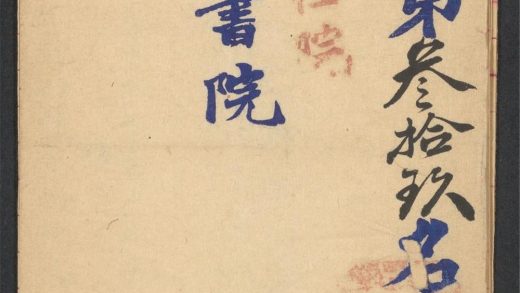 第叁拾玖名
院
書院